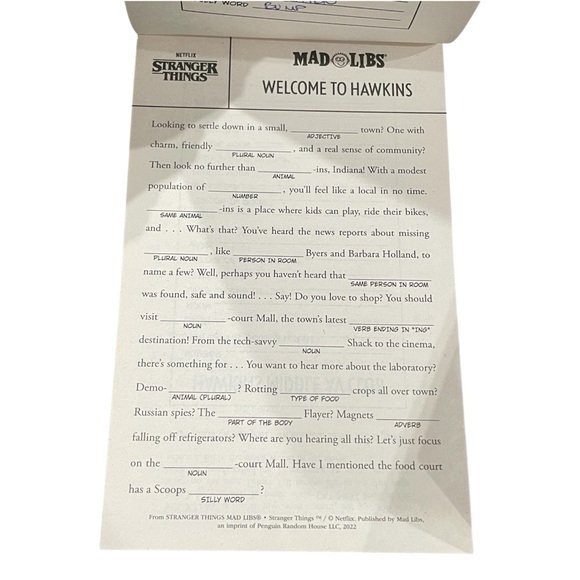 SILLY WORD BUMP
NETFLIX
STRANGER
THINGS
MAD LIBS®
WELCOME TO HAWKINS
Looking to settle down in a small, __________ town? One with
ADJECTIVE
charm, friendly __________, and a real sense of community?
PLURAL NOUN
Then look no further than __________-ins, Indiana! With a modest
ANIMAL
population of __________, you'll feel like a local in no time.
NUMBER
__________-ins is a place where kids can play, ride their bikes,
SAME ANIMAL
and . . . What's that? You've heard the news reports about missing
__________, like __________ Byers and Barbara Holland, to
PLURAL NOUN PERSON IN ROOM
name a few? Well, perhaps you haven't heard that __________
SAME PERSON IN ROOM
was found, safe and sound! . . . Say! Do you love to shop? You should
visit __________-court Mall, the town's latest __________
NOUN VERB ENDING IN "ING"
destination! From the tech-savvy __________ Shack to the cinema,
NOUN
there's something for . . . You want to hear more about the laboratory?
Demo-__________? Rotting __________ crops all over town?
ANIMAL (PLURAL) TYPE OF FOOD
Russian spies? The __________ Flayer? Magnets __________
PART OF THE BODY ADVERB
falling off refrigerators? Where are you hearing all this? Let's just focus
on the __________-court Mall. Have I mentioned the food court
NOUN
has a Scoops __________?
SILLY WORD
From STRANGER THINGS MAD LIBS® • Stranger Things ™ / © Netflix. Published by Mad Libs,
an imprint of Penguin Random House LLC, 2022